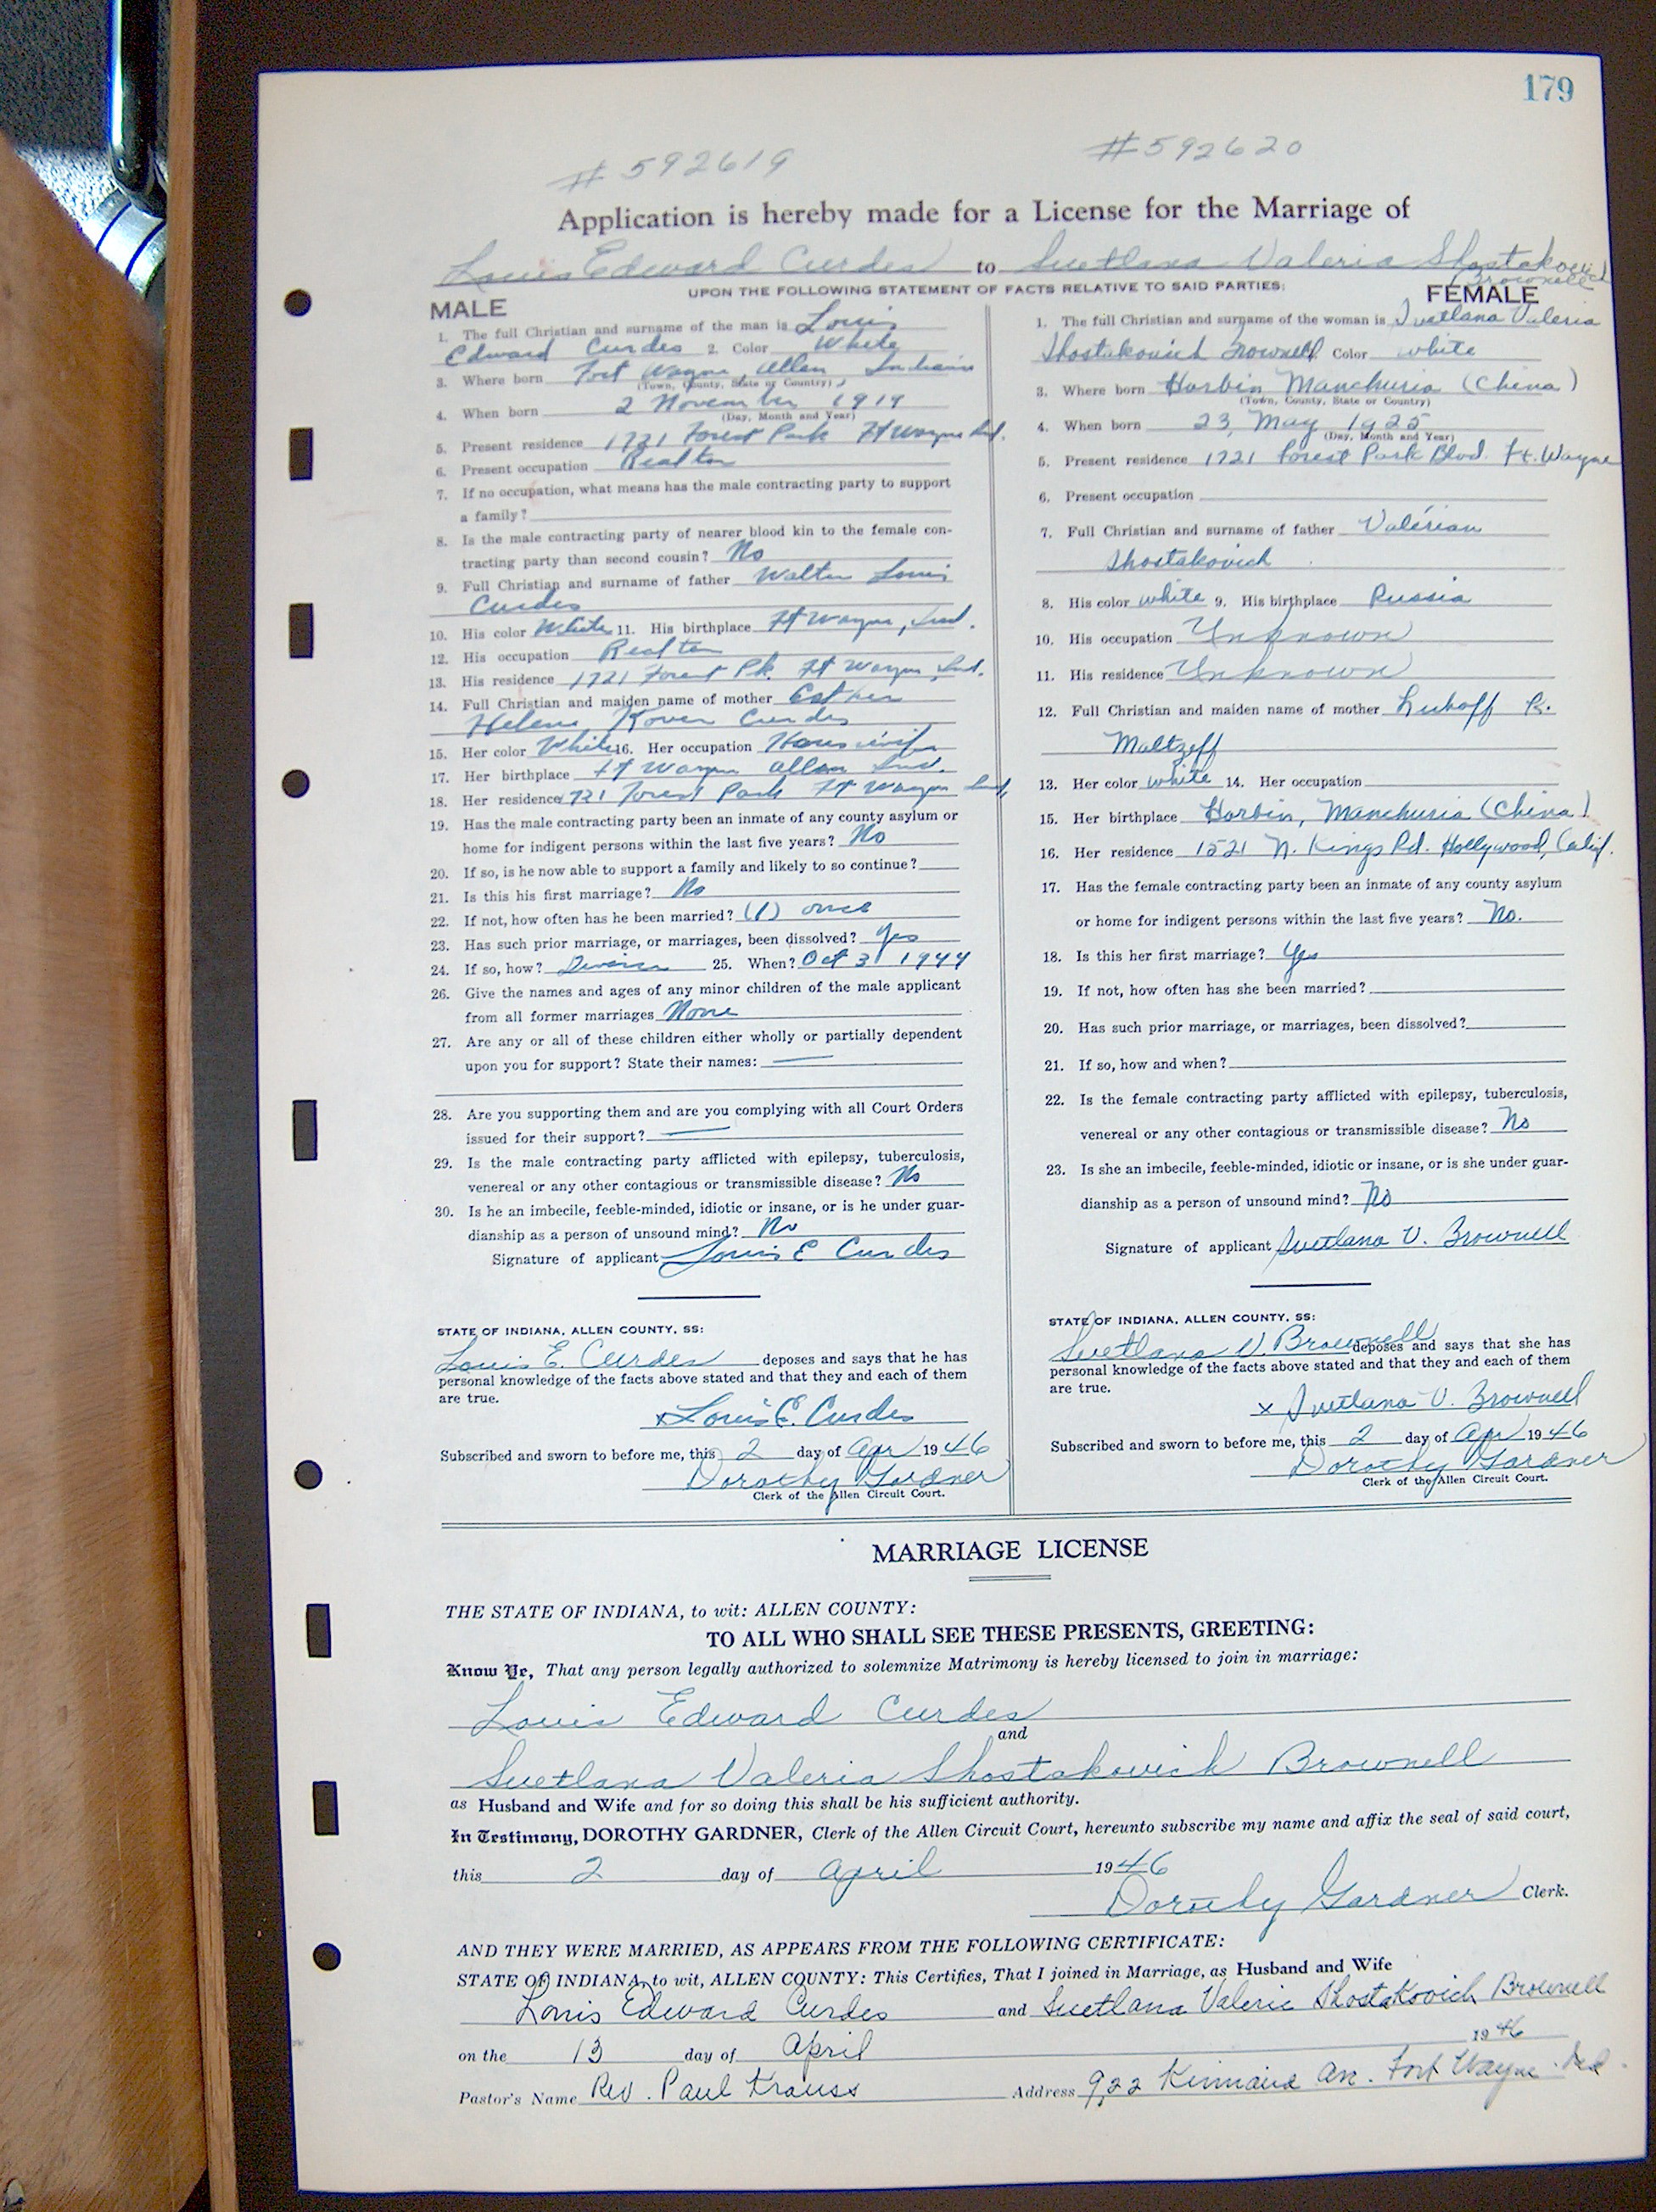 179
#592619 #592620
Application is hereby made for a License for the Marriage of
Louis Edward Curdes to Svetlana Valeria Shostakovich
Brownell
UPON THE FOLLOWING STATEMENT OF FACTS RELATIVE TO SAID PARTIES:
MALE
1. The full Christian and surname of the man is Louis
Edward Curdes 2. Color White
3. Where born Fort Wayne, Allen Indiana
(Town, County, State or Country)
4. When born 2 November 1919
(Day, Month and Year)
5. Present residence 1721 Forest Park Ft Wayne Ind.
6. Present occupation Realtor
7. If no occupation, what means has the male contracting party to support
a family?
8. Is the male contracting party of nearer blood kin to the female con-
tracting party than second cousin? No
9. Full Christian and surname of father Walter Louis
Curdes
10. His color White 11. His birthplace Ft Wayne, Ind.
12. His occupation Realtor
13. His residence 1721 Forest Pk. Ft Wayne, Ind.
14. Full Christian and maiden name of mother Esther
Helene Kover Curdes
15. Her color White 16. Her occupation Housewife
17. Her birthplace Ft Wayne Allen Ind.
18. Her residence 1721 Forest Park Ft Wayne Ind.
19. Has the male contracting party been an inmate of any county asylum or
home for indigent persons within the last five years? No
20. If so, is he now able to support a family and likely to so continue?
21. Is this his first marriage? No
22. If not, how often has he been married? (1) once
23. Has such prior marriage, or marriages, been dissolved? Yes
24. If so, how? Divorce 25. When? Oct 3 1944
26. Give the names and ages of any minor children of the male applicant
from all former marriages None
27. Are any or all of these children either wholly or partially dependent
upon you for support? State their names: —
28. Are you supporting them and are you complying with all Court Orders
issued for their support? —
29. Is the male contracting party afflicted with epilepsy, tuberculosis,
venereal or any other contagious or transmissible disease? No
30. Is he an imbecile, feeble-minded, idiotic or insane, or is he under guar-
dianship as a person of unsound mind? No
Signature of applicant Louis E Curdes
STATE OF INDIANA, ALLEN COUNTY, SS:
Louis E. Curdes deposes and says that he has
personal knowledge of the facts above stated and that they and each of them
are true.
x Louis E. Curdes
Subscribed and sworn to before me, this 2 day of Apr 1946
Dorothy Gardner
Clerk of the Allen Circuit Court.
FEMALE
1. The full Christian and surname of the woman is Svetlana Valeria
Shostakovich Brownell Color white
3. Where born Harbin Manchuria (China)
(Town, County, State or Country)
4. When born 23, May 1925
(Day, Month and Year)
5. Present residence 1721 Forest Park Blvd. Ft. Wayne
6. Present occupation
7. Full Christian and surname of father Valérian
Shostakovich
8. His color white 9. His birthplace Russia
10. His occupation Unknown
11. His residence Unknown
12. Full Christian and maiden name of mother Luboff P.
Maltzeff
13. Her color white 14. Her occupation
15. Her birthplace Harbin, Manchuria (China)
16. Her residence 1521 N. Kings Rd. Hollywood, Calif.
17. Has the female contracting party been an inmate of any county asylum
or home for indigent persons within the last five years? No.
18. Is this her first marriage? Yes
19. If not, how often has she been married?
20. Has such prior marriage, or marriages, been dissolved?
21. If so, how and when?
22. Is the female contracting party afflicted with epilepsy, tuberculosis,
venereal or any other contagious or transmissible disease? No
23. Is she an imbecile, feeble-minded, idiotic or insane, or is she under guar-
dianship as a person of unsound mind? No
Signature of applicant Svetlana V. Brownell
STATE OF INDIANA, ALLEN COUNTY, SS:
Svetlana V. Brownell deposes and says that she has
personal knowledge of the facts above stated and that they and each of them
are true.
x Svetlana V. Brownell
Subscribed and sworn to before me, this 2 day of Apr 1946
Dorothy Gardner
Clerk of the Allen Circuit Court.
MARRIAGE LICENSE
THE STATE OF INDIANA, to wit: ALLEN COUNTY:
TO ALL WHO SHALL SEE THESE PRESENTS, GREETING:
Know Ye, That any person legally authorized to solemnize Matrimony is hereby licensed to join in marriage:
Louis Edward Curdes
and
Svetlana Valeria Shostakovich Brownell
as Husband and Wife and for so doing this shall be his sufficient authority.
In Testimony, DOROTHY GARDNER, Clerk of the Allen Circuit Court, hereunto subscribe my name and affix the seal of said court,
this 2 day of April 1946
Dorothy Gardner Clerk.
AND THEY WERE MARRIED, AS APPEARS FROM THE FOLLOWING CERTIFICATE:
STATE OF INDIANA, to wit, ALLEN COUNTY: This Certifies, That I joined in Marriage, as Husband and Wife
Louis Edward Curdes and Svetlana Valeria Shostakovich Brownell
on the 13 day of April 1946
Pastor's Name Rev. Paul Krauss Address 922 Kinnaird Ave. Fort Wayne Ind